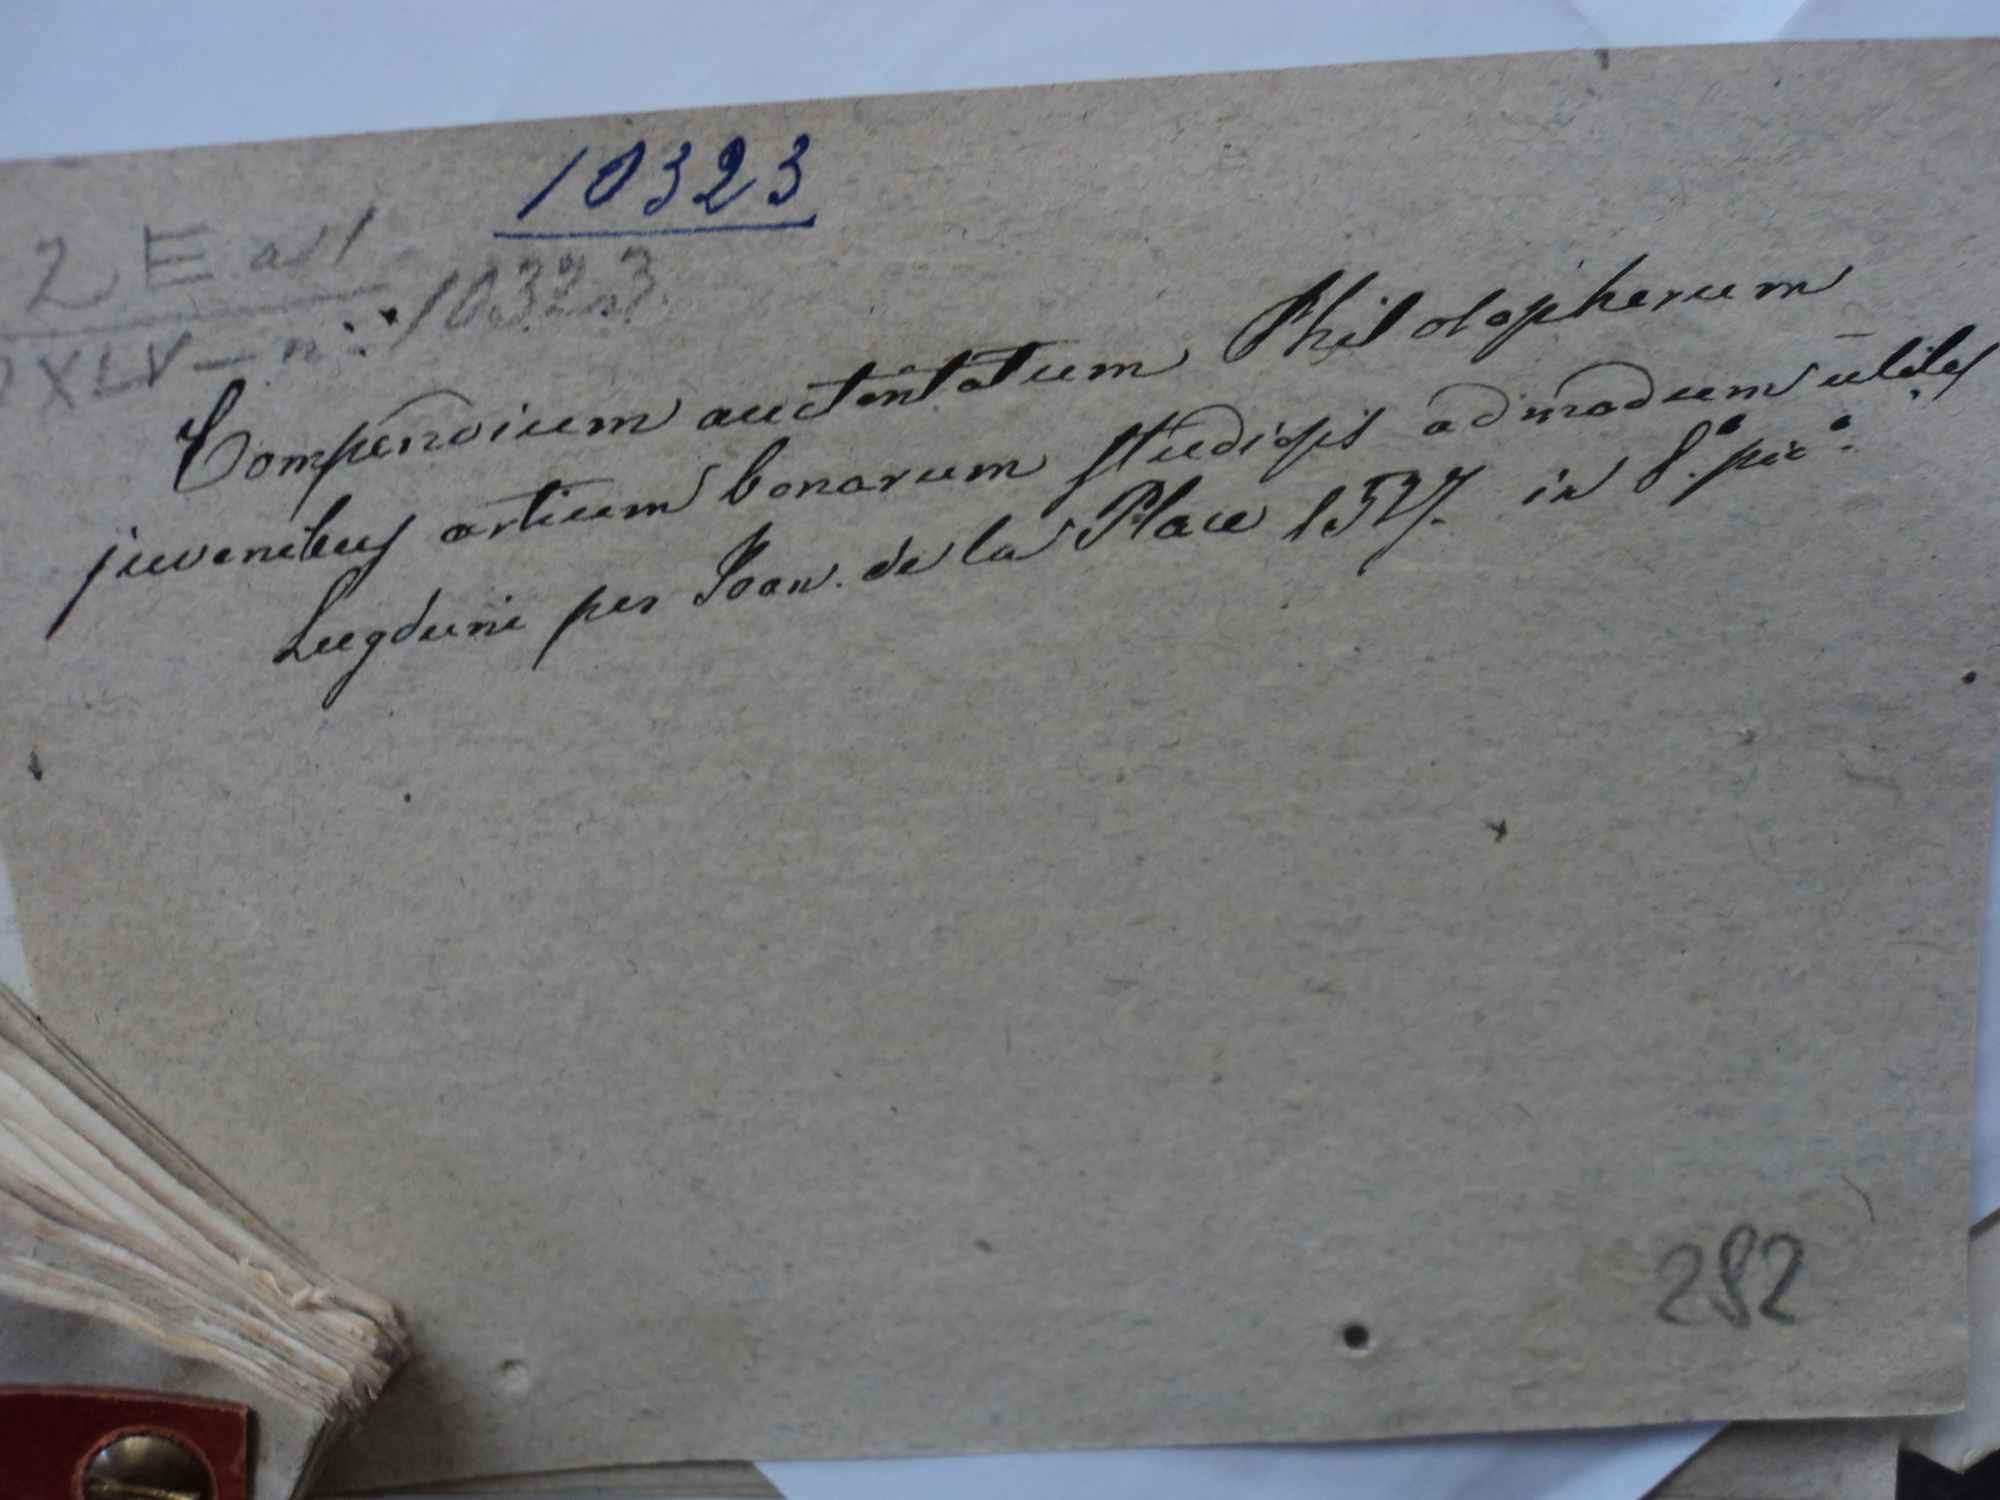 10323
2 E
XLV - n: 10323
Compendium auctoritatum Philosophorum
juvenibus artium bonarum studiosis admodum utile
Lugduni per Joan. de la Place 1527. in 8.° pic.°
282